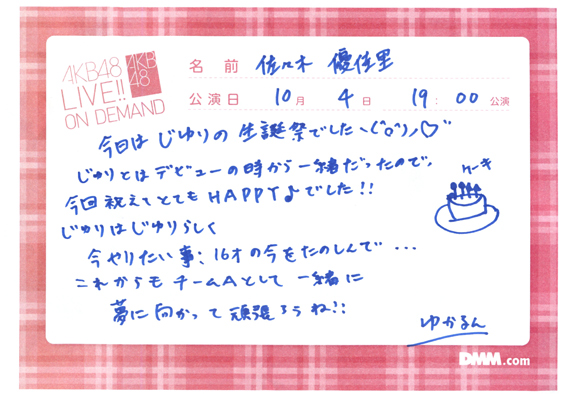 AKB48
LIVE!!
ON DEMAND
AKB
48
名前 佐々木 優佳里
公演日 10月 4日 19:00公演
今日は じゅりの 生誕祭でしたヽ(^o^)ノ♡"
じゅりとはデビューの時から一緒だったので、
今回祝えてとても HAPPY♪でした!!
じゅりはじゅりらしく
今やりたい事、16才の今をたのしんで ...
これからも チームAとして 一緒に
夢に向かって 頑張ろうね!!
ケーキ
ゆかるん
DMM.com